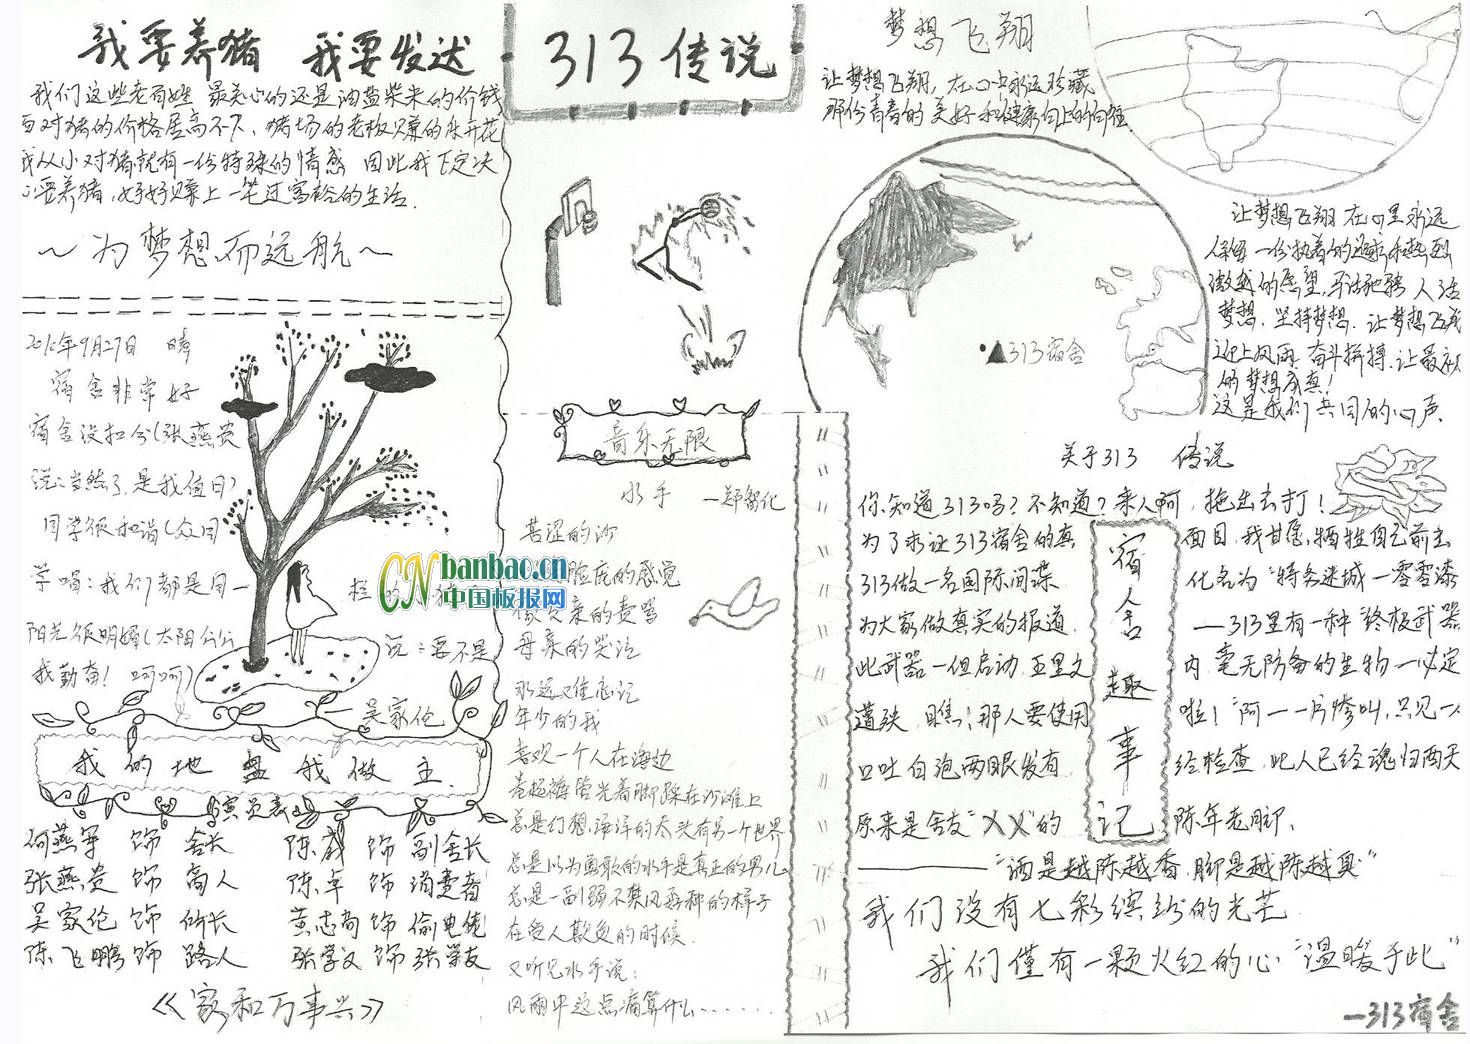 我要养猪 我要发达
我们这些老百姓 最关心的还是油盐柴米的价钱
面对猪的价格居高不下、猪场的老板赚的乐开花
我从小对猪就有一份特殊的情感 因此我下定决
心要养猪,好好赚上一笔过富裕的生活.
~为梦想而远航~
2010年9月27日 晴
宿舍非常好
宿舍没扣分(张燕贵
说:当然了,是我值日)
同学很和谐(众同
学唱:我们都是同一
阳光很明媚(太阳公公
说:要不是
我勤奋! 呵呵)
吴家伦
我的地盘我做主
演员表
何燕军 饰 舍长 陈成 饰 副舍长
张燕贵 饰 商人 陈年 饰 消费者
吴家伦 饰 所长 黄志尚 饰 偷电佬
陈飞鹏 饰 路人 张学文 饰 张学友
《家和万事兴》
313传说
音乐无限
水手 —郑智化
苦涩的沙
脸庞的感觉
像父亲的责骂
母亲的哭泣
永远难忘记
年少的我
喜欢一个人在海边
卷起裤管光着脚踩在沙滩上
总是幻想海洋的尽头有另一个世界
总是以为勇敢的水手是真正的男儿
总是一副弱不禁风孬种的样子
在受人欺负的时候
又听见水手说:
风雨中这点痛算什么......
CN banbao.cn
中国板报网
梦想飞翔
让梦想飞翔,在心中永远珍藏
那份青春的美好和健康向上的向往
让梦想飞翔 在心里永远
保留一份执着的追求和热烈
激越的愿望,
梦想、坚持梦想.让梦想飞
迎上风雨 奋斗拼搏.让最
的梦想成真!
这是我们共同的心声.
313宿舍
关于313 传说
你知道313吗?不知道?来人啊,拖出去打!
为了求证313宿舍的真面目,我甘愿牺牲自己前去
313做一名国际间谍 化名为"特务迷城一零零漆
为大家做真实的报道. —313里有一种终极武器
此武器一但启动,五里之内,毫无防备的生物一定
遭殃.瞧!那人要使用啦!"阿——"一片惨叫,只见
口吐白泡两眼发直 经检查,此人已经魂归西天
原来是舍友"XX"的陈年老脚.
宿舍趣事记
———"酒是越陈越香,脚是越陈越臭"
我们没有七彩缤纷的光芒
我们仅有一颗火红的心"温暖于此"
—313宿舍